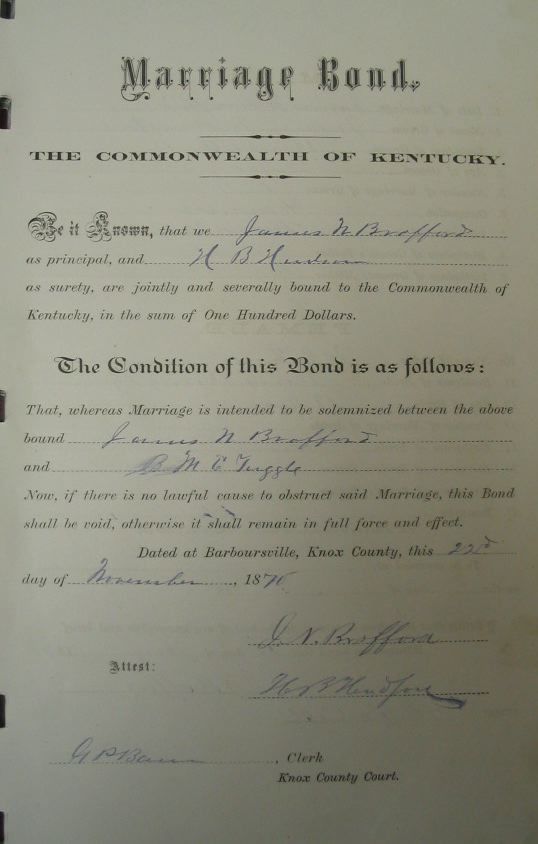 Marriage Bond,
THE COMMONWEALTH OF KENTUCKY.
Be it Known, that we James N Brofford
as principal, and H B
as surety, are jointly and severally bound to the Commonwealth of
Kentucky, in the sum of One Hundred Dollars.
The Condition of this Bond is as follows:
That, whereas Marriage is intended to be solemnized between the above
bound James N Brofford
and B M E Tuggle
Now, if there is no lawful cause to obstruct said Marriage, this Bond
shall be void, otherwise it shall remain in full force and effect.
Dated at Barboursville, Knox County, this 22d
day of November, 187
J. N. Brofford
Attest:
H B
G P, Clerk
Knox County Court.